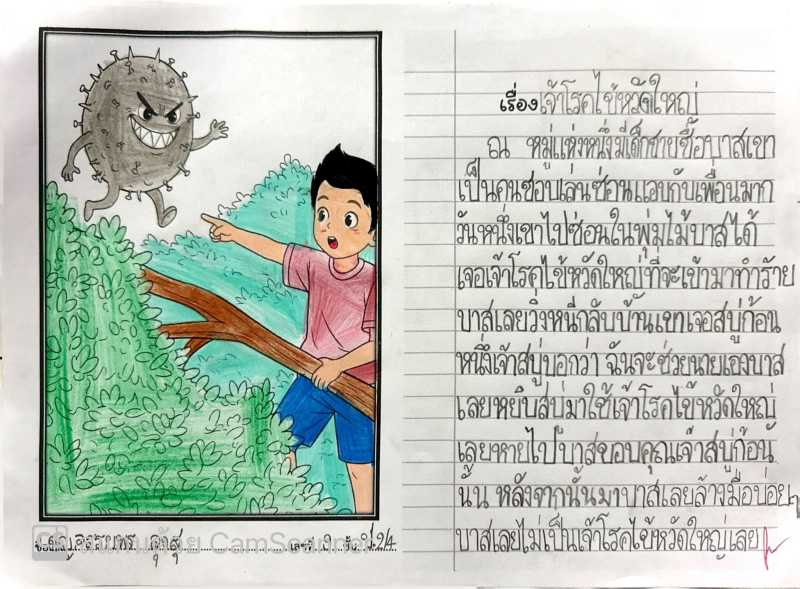 เรื่องเจ้าโรคไข้หวัดใหญ่
ณ หมู่แห่งหนึ่งมีเด็กชายชื่อบาสเขา
เป็นคนชอบเล่นซ่อนแอบกับเพื่อนมาก
วันหนึ่งเขาไปซ่อนในพุ่มไม้บาสได้
เจอเจ้าโรคไข้หวัดใหญ่ที่จะเข้ามาทำร้าย
บาสเลยวิ่งหนีกลับบ้านเขาเจอสบู่ก้อน
หนึ่งเจ้าสบู่บอกว่า ฉันจะช่วยนายเองบาส
เลยหยิบสบู่มาใช้เจ้าโรคไข้หวัดใหญ่
เลยหายไปบาสขอบคุณเจ้าสบู่ก้อน
นั้น หลังจากนั้นมาบาสเลยล้างมือบ่อยๆ
บาสเลยไม่เป็นเจ้าโรคไข้หวัดใหญ่เลย
CamScanner
เลขที่ ชั้น ป.2/4